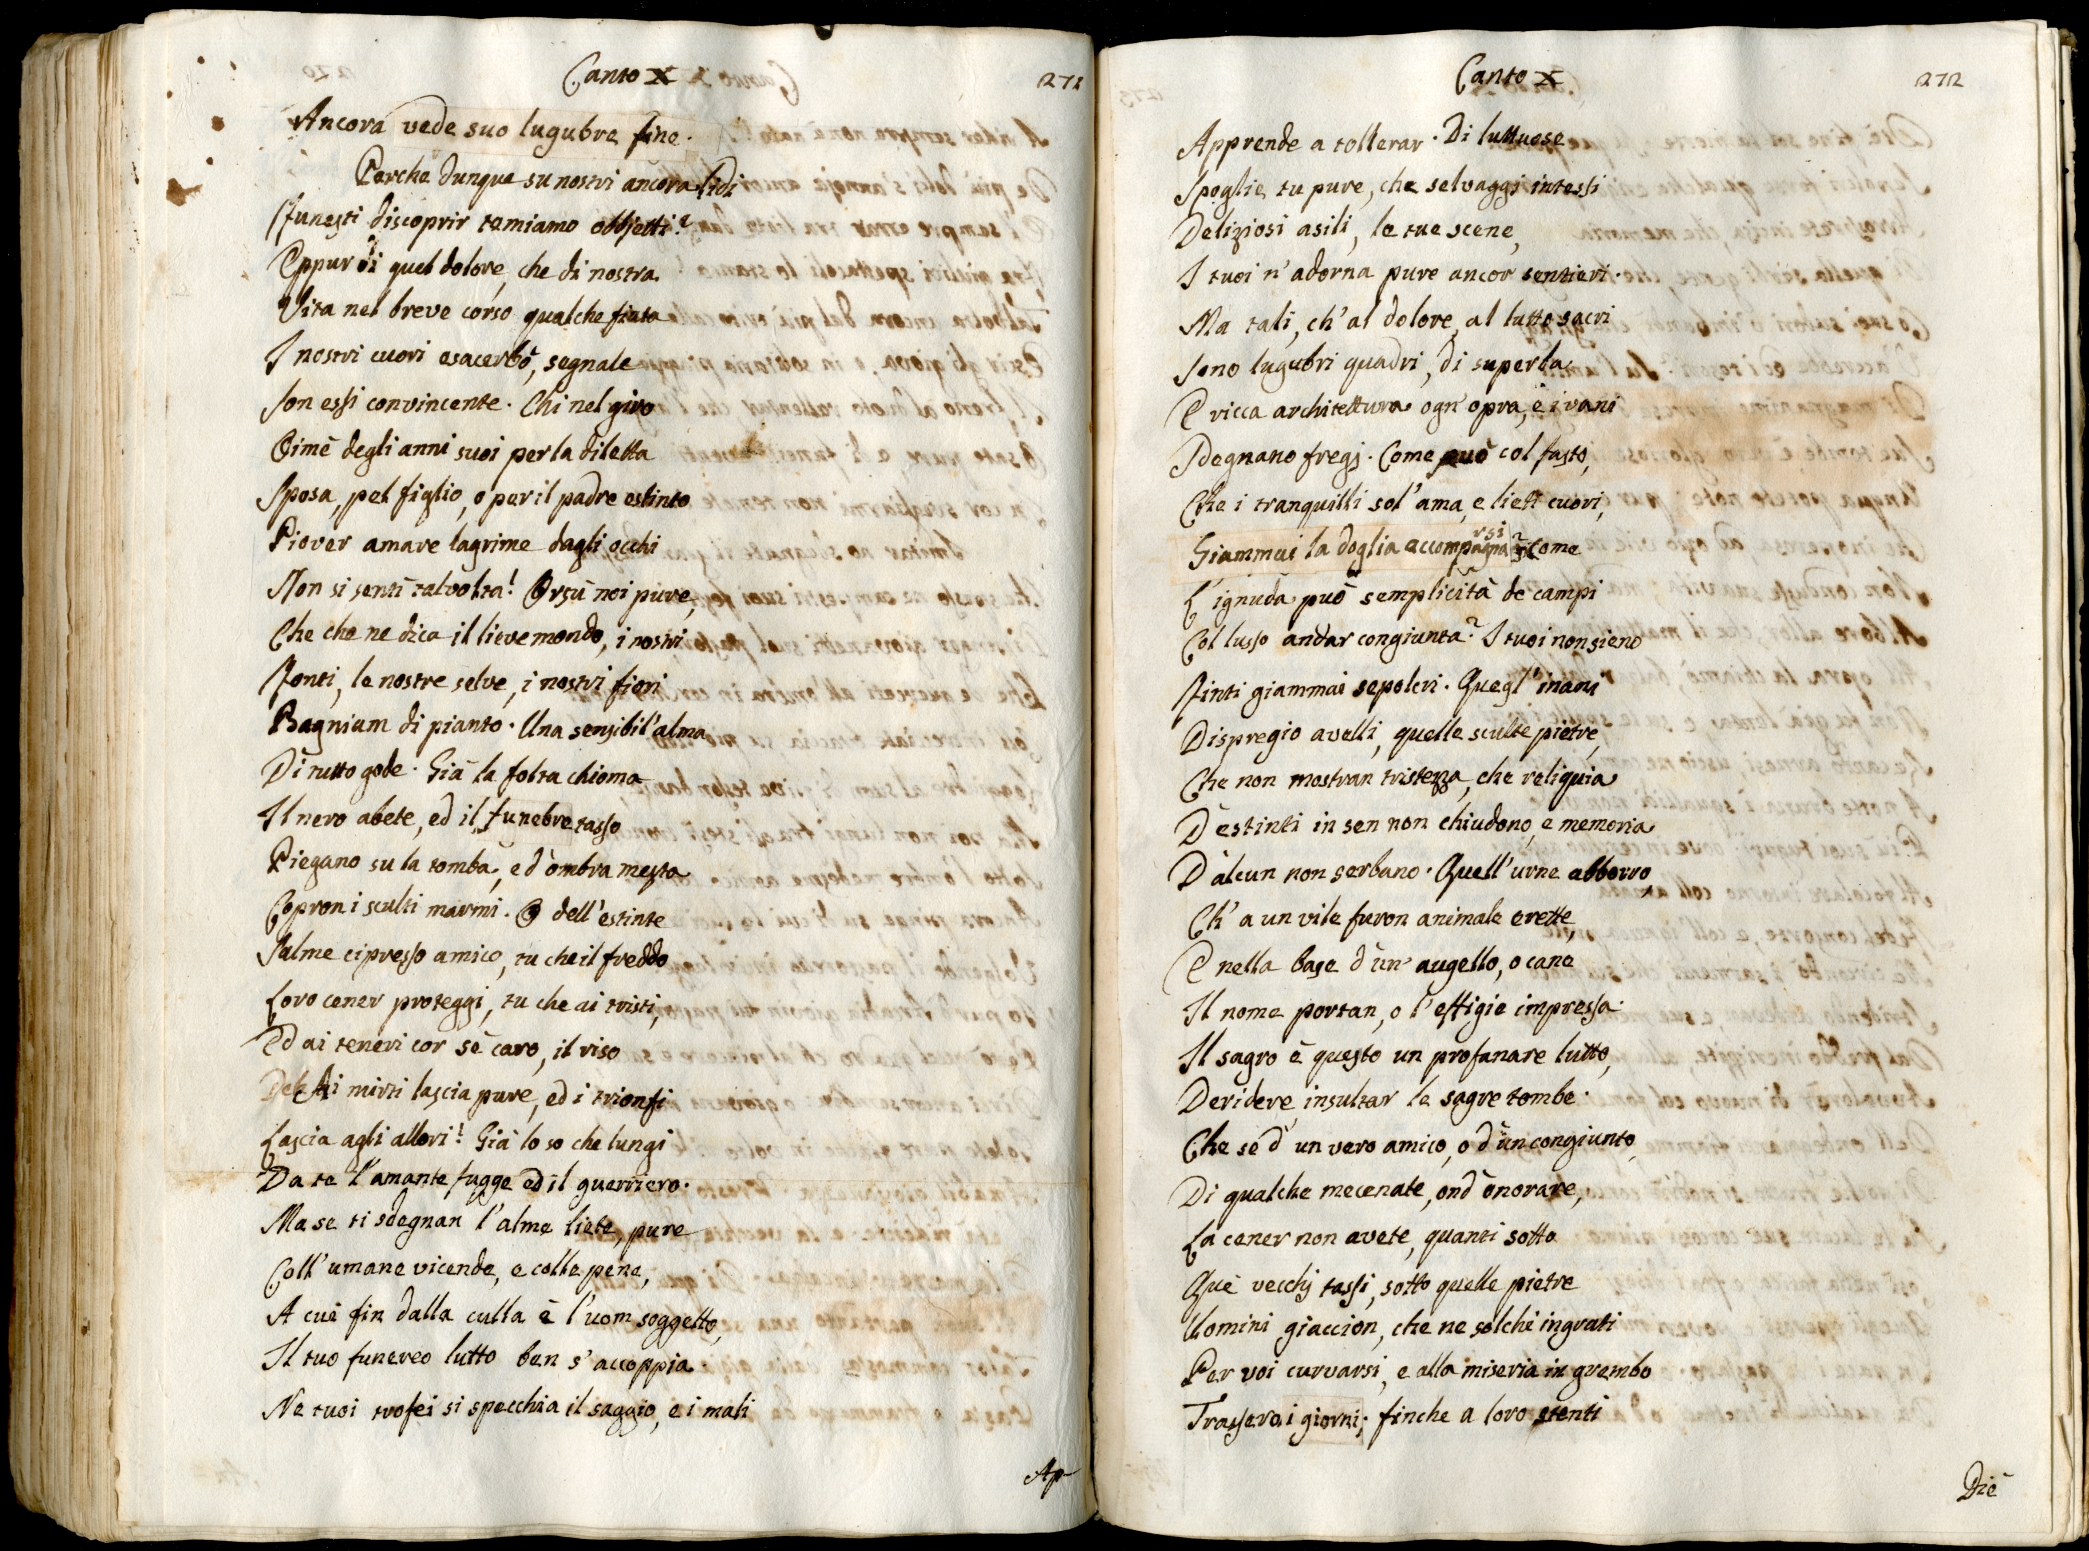 Canto X
271
Ancora vede suo lugubre fine.
Perche dunque su nostri ancora lidi
Funesti discoprir temiamo obbjetti?
Eppur di quel dolore, che di nostra
Vita nel breve corso qualche fiata
I nostri cuori esacerbò, segnale
Son essi convincente. Chi nel giro
Oimè degli anni suoi per la diletta
Sposa, pel figlio, o per il padre estinto
Piover amare lagrime dagli occhi
Non si sentì talvolta! Orsù noi pure,
Che che ne dica il lieve mondo, i nostri
Fonti, le nostre selve, i nostri fiori
Bagnium di pianto. Una sensibil'alma
Di tutto gode. Già la folta chioma
Il nero abete, ed il funebre tasso
Piegano su la tomba, e d'ombra mesta
Copron i sculti marmi. O dell'estinte
Salme cipresso amico, tu che il freddo
Loro cener proteggi, tu che ai tristi,
Ed ai teneri cor sè caro, il viso
Deh Ai mirti lascia pure, ed i trionfi
Lascia agli allori! Già lo so che lungi
Da te l'amante fugge ed il guerriero.
Ma se ti sdegnan l'alme liete, pure
Coll'umane vicende, e colle pene,
A cuè fin dalla culla è l'uom soggetto,
Il tuo funereo lutto ben s'accoppia.
Ne tuoi trofei si specchia il saggio, e i mali
Ap
Canto X
272
Apprende a tollerar. Di luttuose
Spoglie tu pure, che selvaggi intessi
Deliziosi asili, le tue scene,
I tuoi n'adorna pure ancor sentieri.
Ma tali, ch'al dolore, al lutto sacri
Sono lugubri quadri, di superba
E ricca architettura ogn'opra, e i vani
Sdegnano fregj. Come può col fasto,
Che i tranquilli sol'ama, e lieti cuori,
Giammai la doglia accompagnarsi? Come
L'ignuda può semplicità de campi
Col lusso andar congiunta? I tuoi non sieno
Finti giammai sepolcri. Quegl'inani
Dispregio avelli, quelle sculte pietre,
Che non mostran tristezza, che reliquia
D'estinti in sen non chiudono, e memoria
D'alcun non serbano. Quell'urne abborro
Ch'a un vile furon animale erette,
E nella base d'un augello, o cane
Il nome portan, o l'effigie impressa.
Il sagro è questo un profanare lutto,
Deridere, insultar le sagre tombe.
Che se d'un vero amico, o d'un congiunto,
Di qualche mecenate, ond'onorare,
La cener non avete, quanti sotto
Què vecchj tassi, sotto quelle pietre
Uomini giaccion, che ne solchi ingrati
Per voi curvarsi, e alla miseria in grembo
Trassero i giorni; finche a loro stenti
Diè